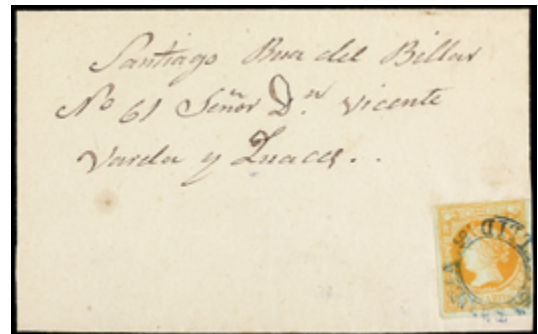 Santiago Rua del Billar
No 61 Señor Dn Vicente
Varela y